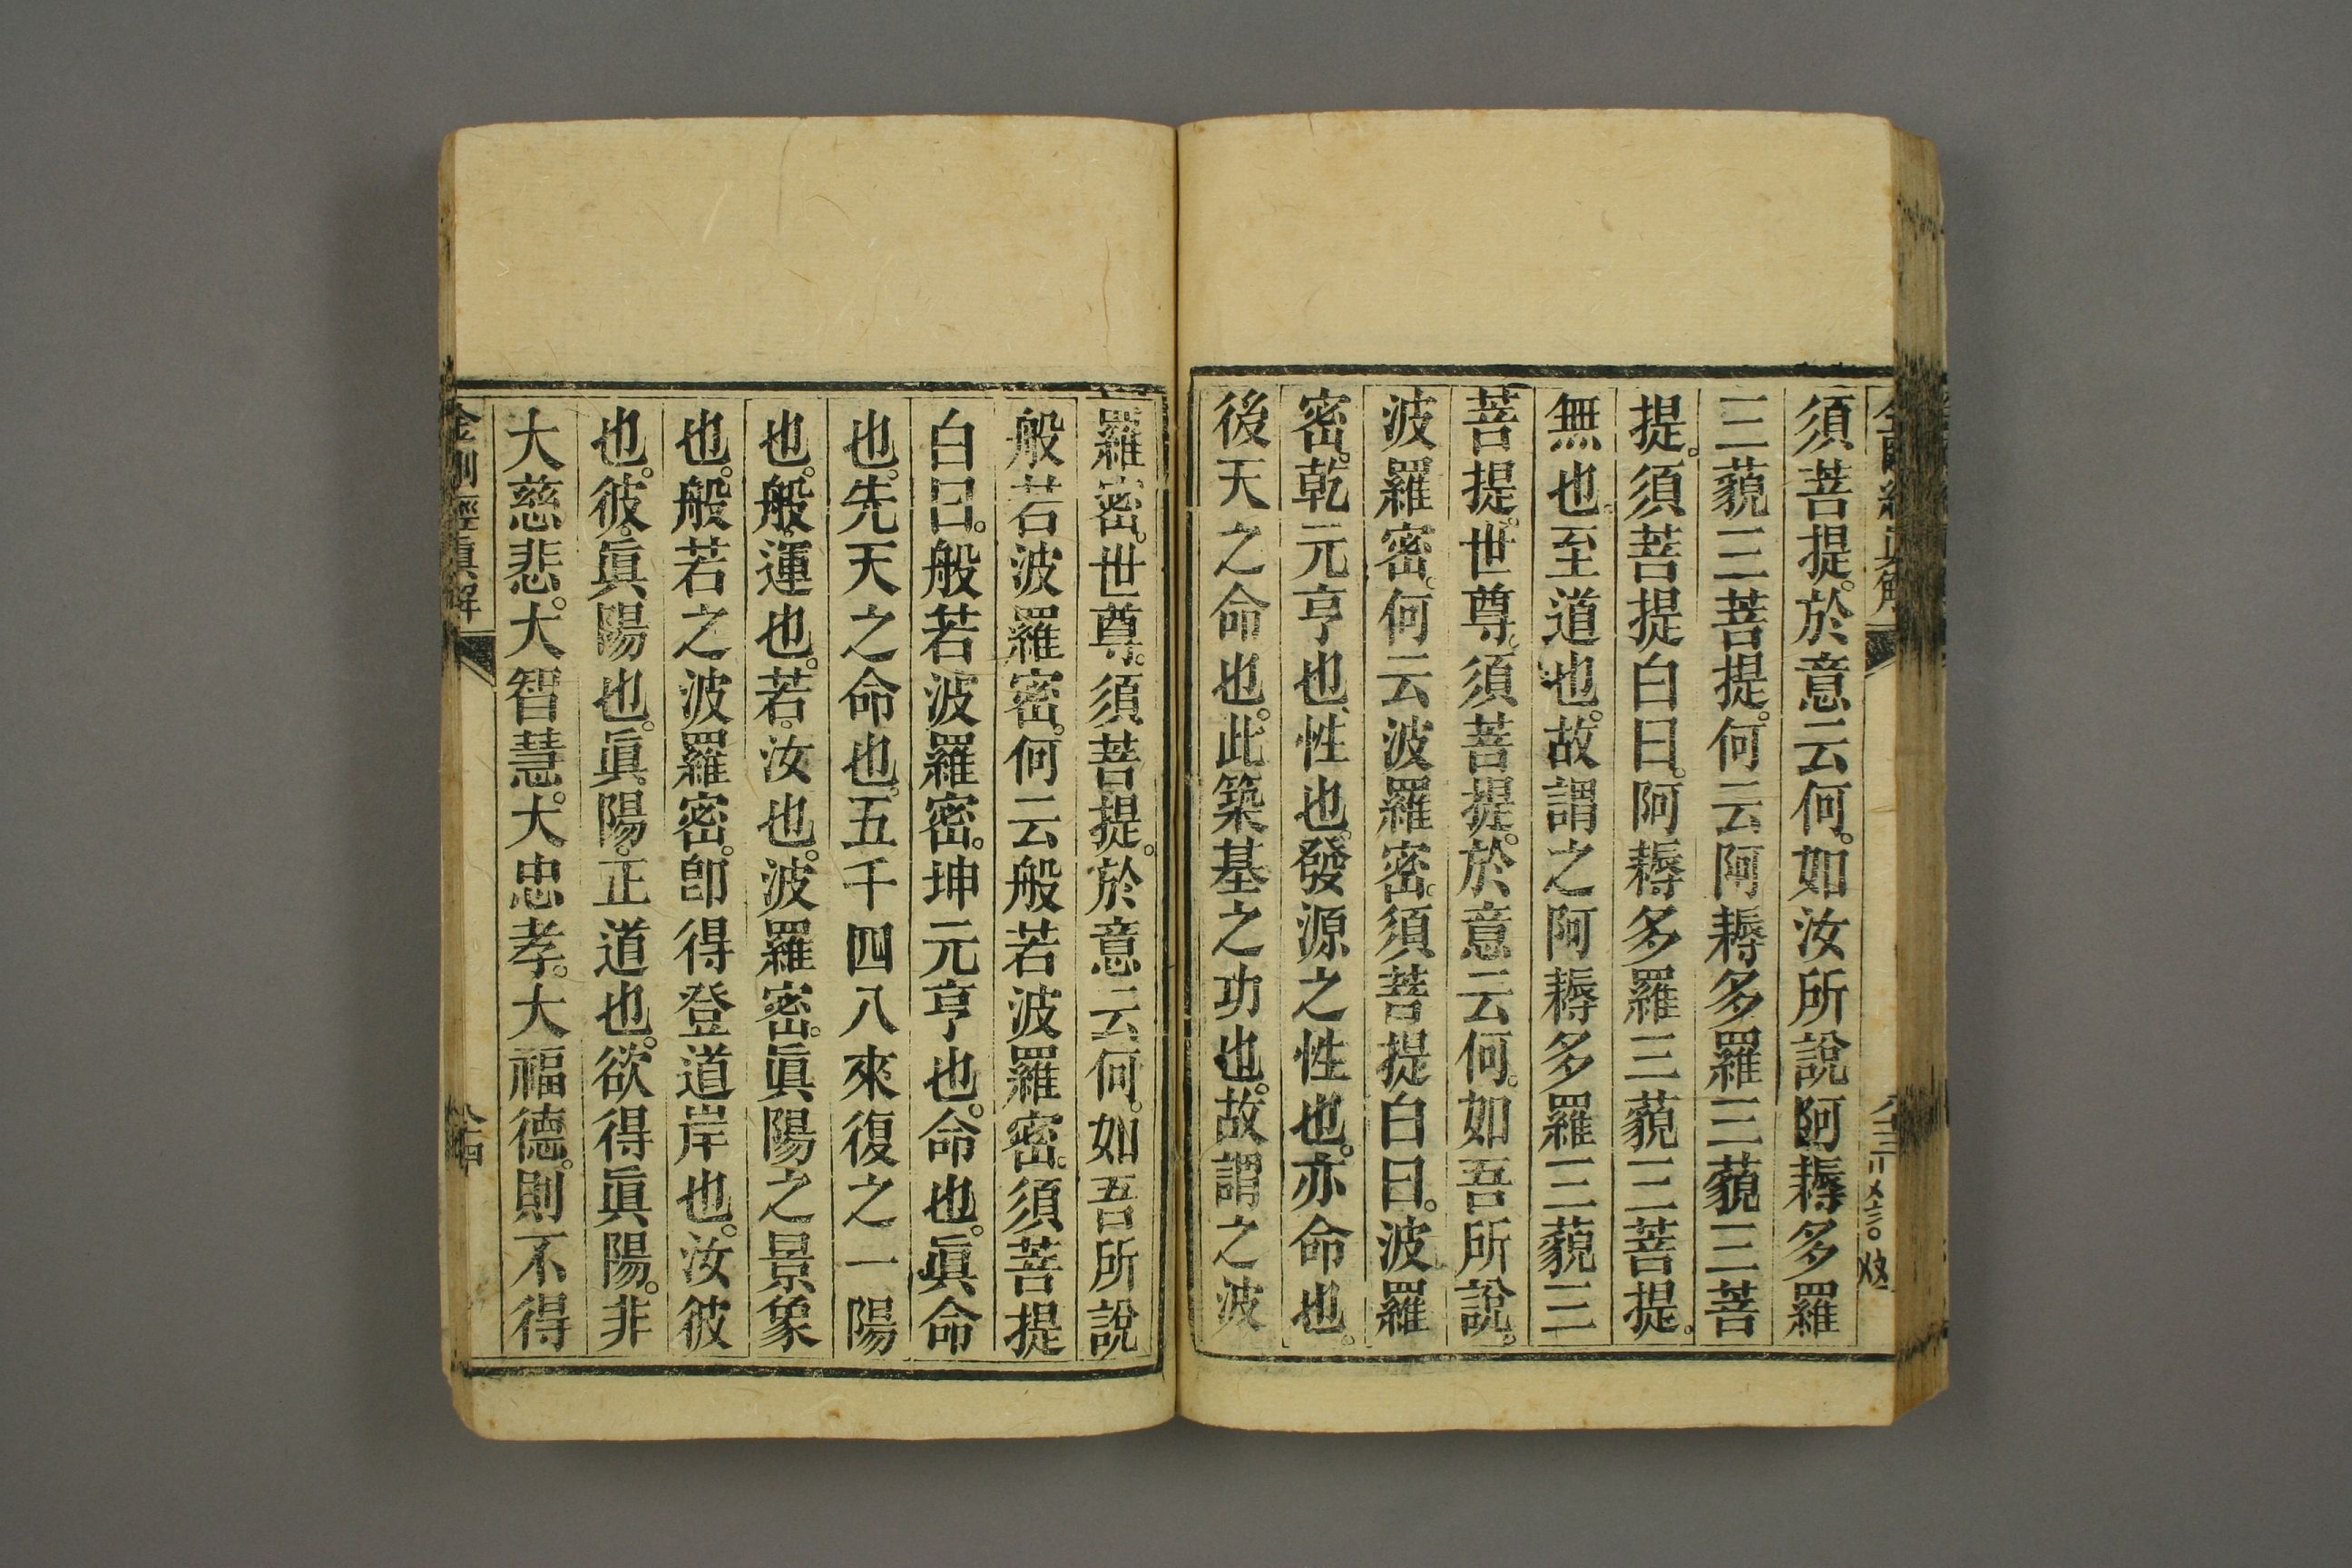 須菩提。於意云何。如汝所說阿耨多羅
三藐三菩提。何云阿耨多羅三藐三菩
提。須菩提白曰。阿耨多羅三藐三菩提。
無也。至道也。故謂之阿耨多羅三藐三
菩提。世尊。須菩提。於意云何。如吾所說。
波羅密。何云波羅密。須菩提白曰。波羅
密。乾元亨也、性也。發源之性也。亦命也。
後天之命也。此築基之功也。故謂之波
羅密。世尊。須菩提。於意云何。如吾所說
般若波羅密。何云般若波羅密。須菩提
白曰。般若波羅密。坤元亨也。命也。眞命
也。先天之命也。五千四八來復之一陽
也。般。運也。若。汝也。波羅密。眞陽之景象
也。般若之波羅密。卽得登道岸也。汝彼
也。彼。眞陽也。眞陽。正道也。欲得眞陽。非
大慈悲。大智慧。大忠孝。大福德。則不得
金剛經眞解